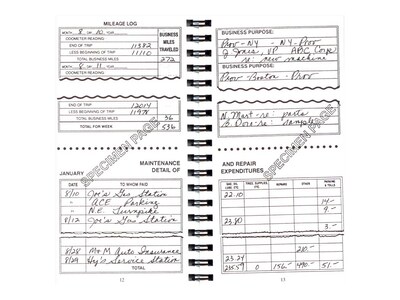 MILEAGE LOG
MONTH 8 DAY 10 YEAR
ODOMETER READING
BUSINESS MILES TRAVELED
END OF TRIP 11382
BEGINNING OF TRIP 11110
TOTAL BUSINESS MILES 272
MONTH 8 DAY 11 YEAR
ODOMETER READING
END OF TRIP 12014
BEGINNING OF TRIP
TOTAL BUSINESS MILES 36
TOTAL FOR WEEK 536
SPECIMEN PAGE
MAINTENANCE
DETAIL OF
JANUARY
DATE TO WHOM PAID
8/10 Joe's Gas Station
" ACE Parking
" N.E. Turnpike
8/12 Joe's Gas Station
8/28 M+M Auto Insurance
8/29 Hy's Service Station
TOTAL
12
BUSINESS PURPOSE:
Prov - NY - NY - Prov
J. Jones, VP ABC Corp
re: new machine
BUSINESS PURPOSE:
Prov - Boston - Prov
N. Mart - re: parts
B. Dore - re: sample
SPECIMEN PAGE
AND REPAIR
EXPENDITURES
REPAIRS OTHER PARKING & TOLLS
22.10
14 -
9 -
23.80
3 -
210 -
23.24
235.57 0 156 - 490 - 51 -
13